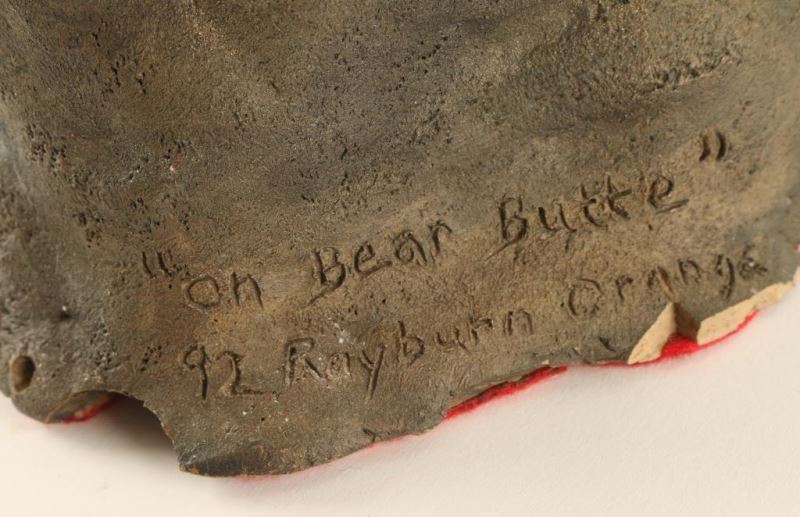 "On Bear Butte"
92 Rayburn Orange